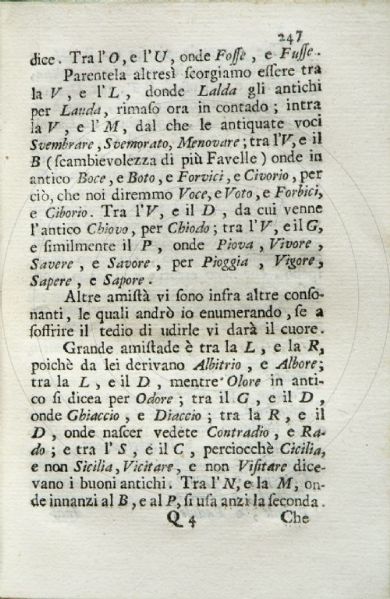 247
dice. Tra l'O, e l'U, onde Foſſe, e Fuſſe.
Parentela altresì ſcorgiamo eſſere tra
la V, e l'L, donde Lalda gli antichi
per Lauda, rimaſo ora in contado; intra
la V, e l'M, dal che le antiquate voci
Svembrare, Svemorato, Menovare; tra l'V, e il
B (ſcambievolezza di più Favelle) onde in
antico Boce, e Boto, e Forvici, e Civorio, per
ciò, che noi diremmo Voce, e Voto, e Forbici,
e Ciborio. Tra l'V, e il D, da cui venne
l'antico Chiovo, per Chiodo; tra l'V, e il G,
e ſimilmente il P, onde Piova, Vivore,
Savere, e Savore, per Pioggia, Vigore,
Sapere, e Sapore.
Altre amiſtà vi ſono infra altre conſo-
nanti, le quali andrò io enumerando, ſe a
ſoffrire il tedio di udirle vi darà il cuore.
Grande amiſtade è tra la L, e la R,
poichè da lei derivano Albitrio, e Albore;
tra la L, e il D, mentre Olore in anti-
co ſi dicea per Odore; tra il G, e il D,
onde Ghiaccio, e Diaccio; tra la R, e il
D, onde naſcer vedete Contradio, e Ra-
do; e tra l'S, é il C, perciocchè Cicilia,
e non Sicilia, Vicitare, e non Viſitare dice-
vano i buoni antichi. Tra l'N, e la M, on-
de innanzi al B, e al P, ſi uſa anzi la ſeconda.
Q 4 Che